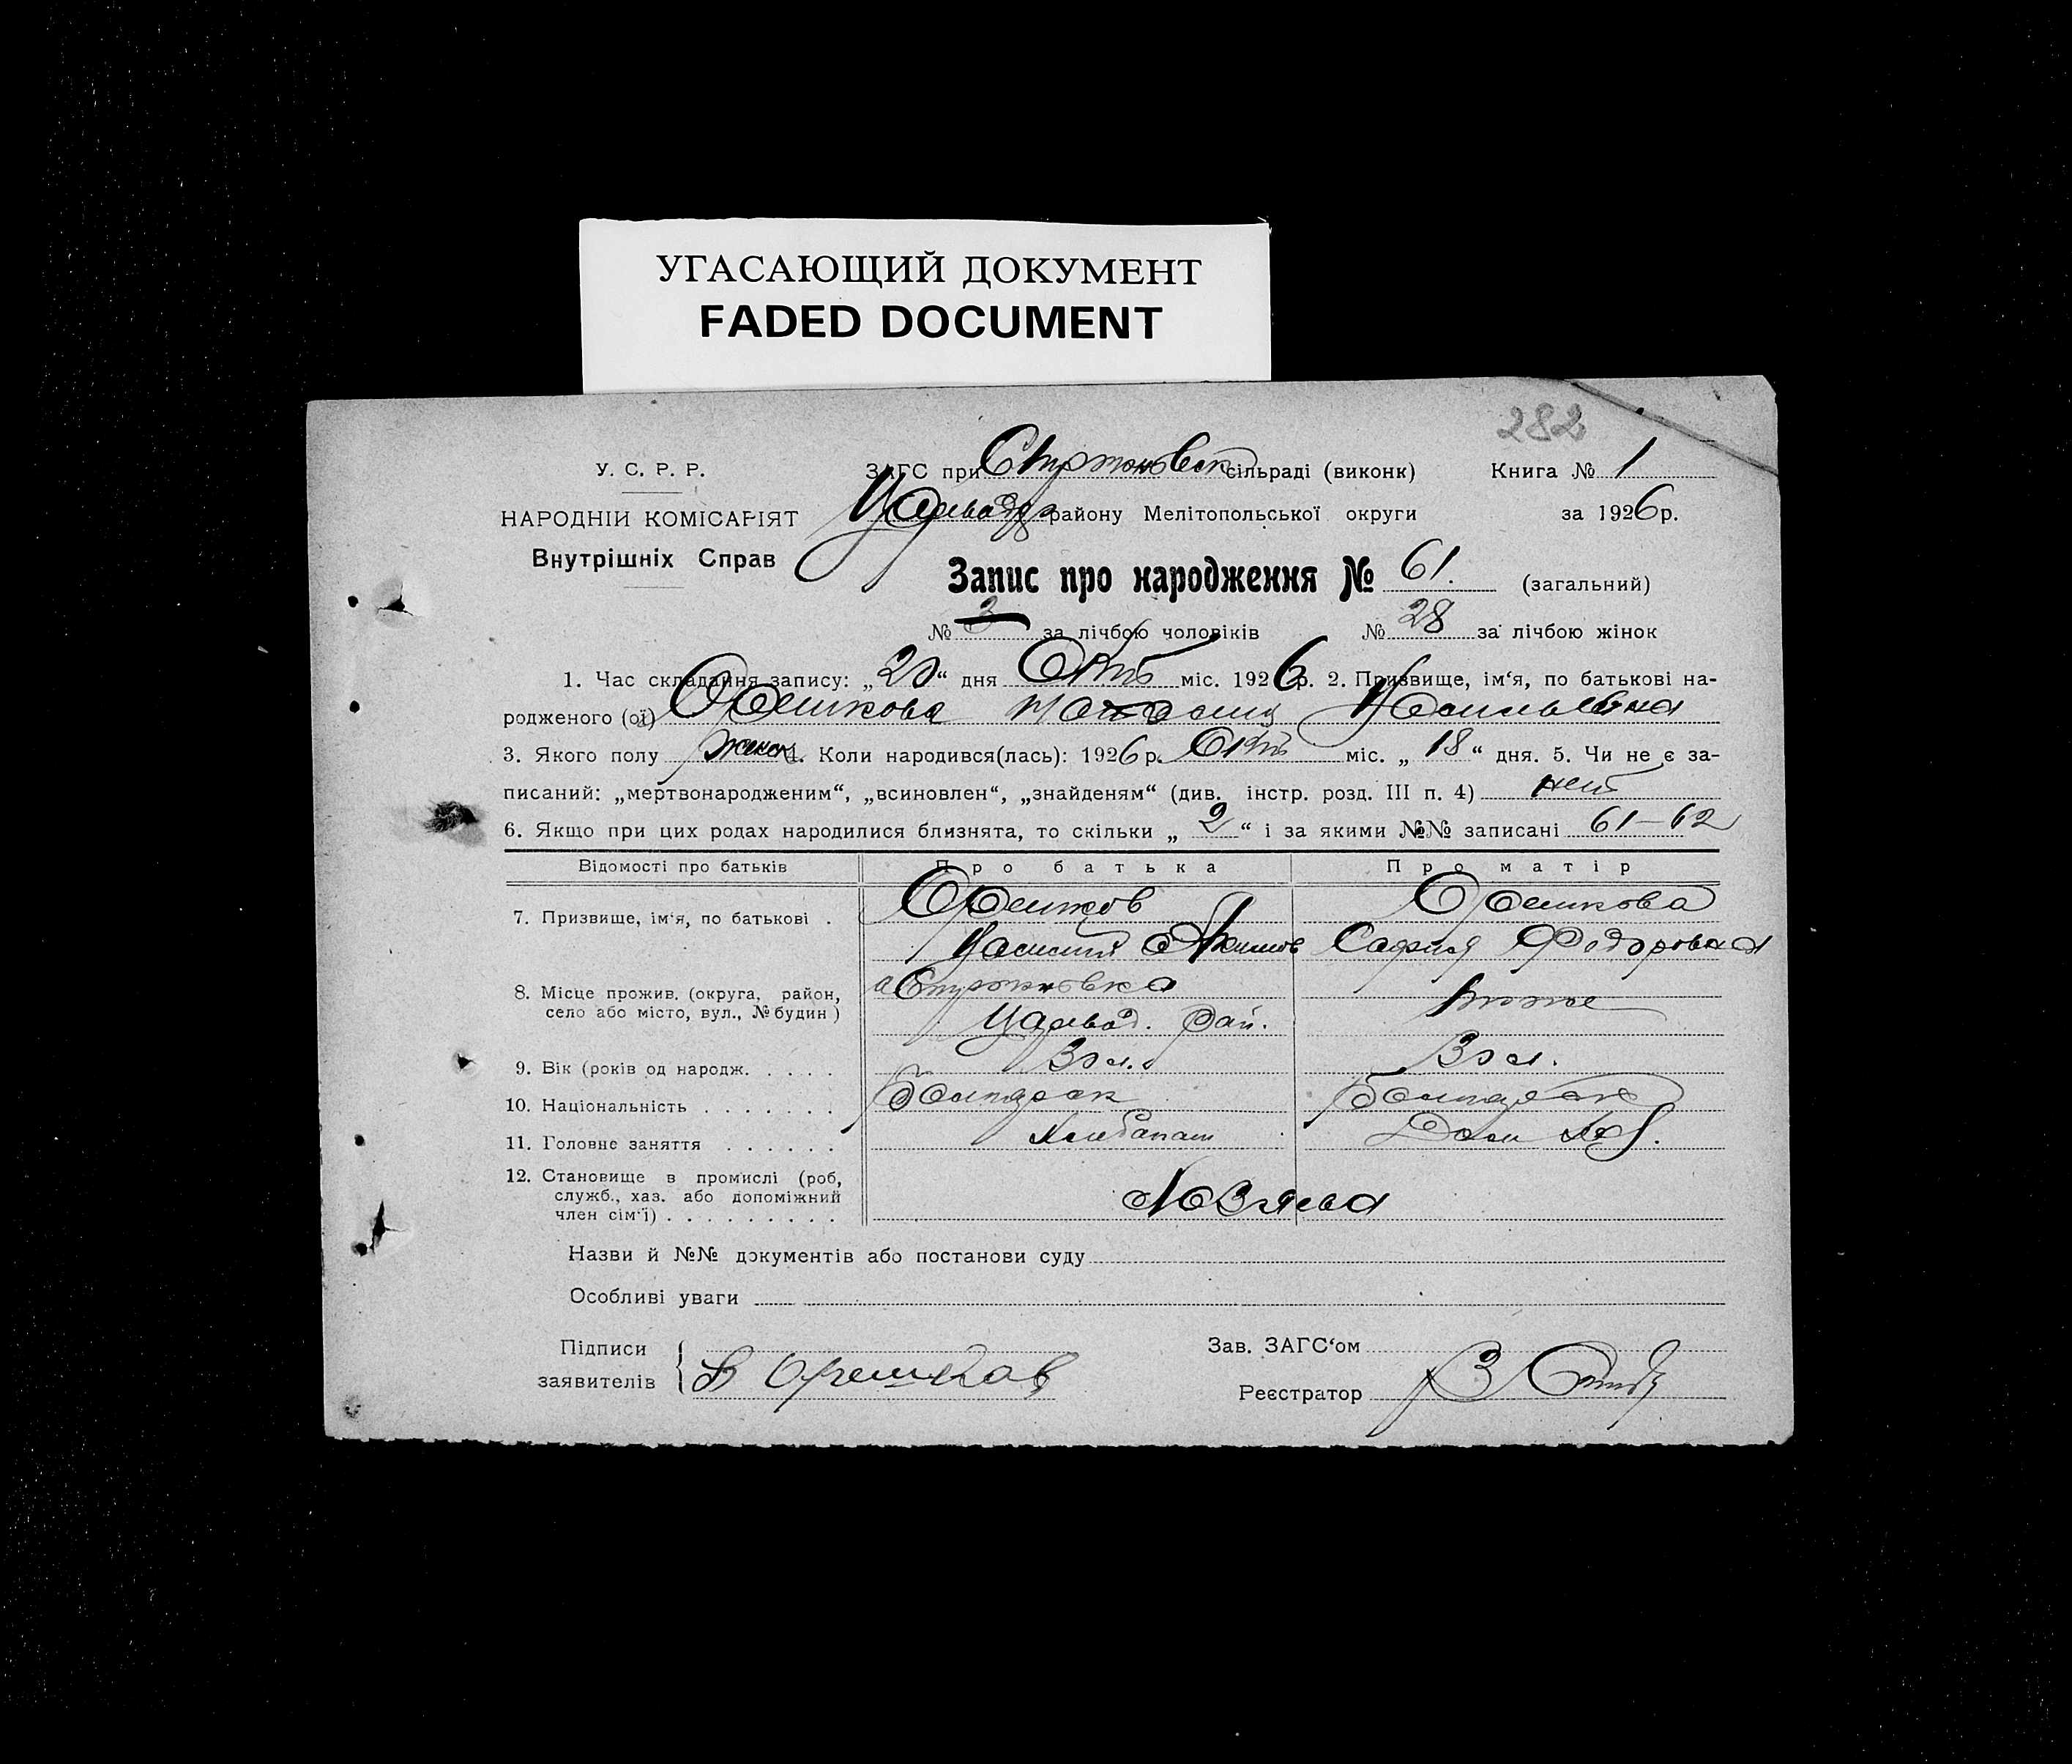 УГАСАЮЩИЙ ДОКУМЕНТ
FADED DOCUMENT
282
У. С. Р. Р.
ЗАГС при сільраді (виконк) Книга № 1
НАРОДНІЙ КОМІСАРІЯТ
району Мелітопольської округи за 1926 р.
Внутрішніх Справ
Запис про народження № 61. (загальний)
№ 3 за лічбою чоловіків № 28 за лічбою жінок
1. Час складання запису: „20“ дня Окт міс. 1926 р. 2. Призвище, ім‘я, по батькові на-
родженого (ої) Орешкова Васильевна
3. Якого полу женск 4. Коли народився(лась): 1926 р. Окт міс. „ 18 “ дня. 5. Чи не є за-
писаний: „мертвонародженим“, „всиновлен“, „знайденям“ (див. інстр. розд. III п. 4) нет
6. Якщо при цих родах народилися близнята, то скільки „ 2 “ і за якими №№ записані 61–62
Відомості про батьків Про батька Про матір
7. Призвище, ім‘я, по батькові . Орешков Орешкова
Василий Акимов София Федоровна
8. Місце прожив. (округа, район, село або місто, вул., № будин) тоже
Царевод. рай.
9. Вік (років од народж. . . . . 30 л. 30 л.
10. Національність . . . . . . . Болгарск Болгарск
11. Головне заняття . . . . . . Хлебопаш Дом хоз.
12. Становище в промислі (роб,
служб., хаз. або допоміжний
член сім‘ї) . . . . . . . . . Хозяева
Назви й №№ документів або постанови суду
Особливі уваги
Підписи Зав. ЗАГС‘ом
заявителів В Орешков Реєстратор